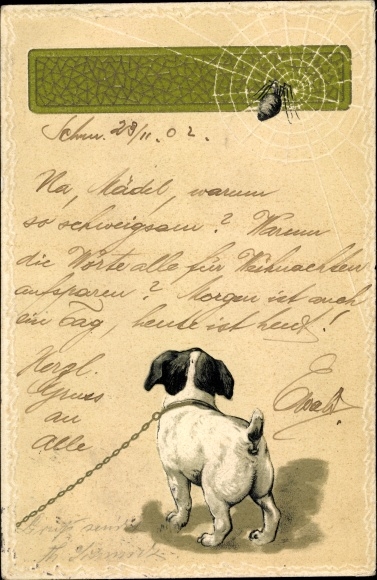 Schw. 28/11. 02.
Na, Mädel, warum
so schweigsam? Warum
die Worte alle für Weihnachten
aufsparen? Morgen ist auch
ein Tag, heute ist heut!
Herzl.
Gruss
an
alle
Ewald.